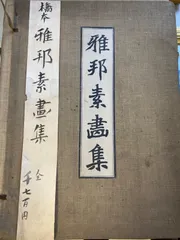 雅邦素畫集
橋本 雅邦素畫集 全
七百円